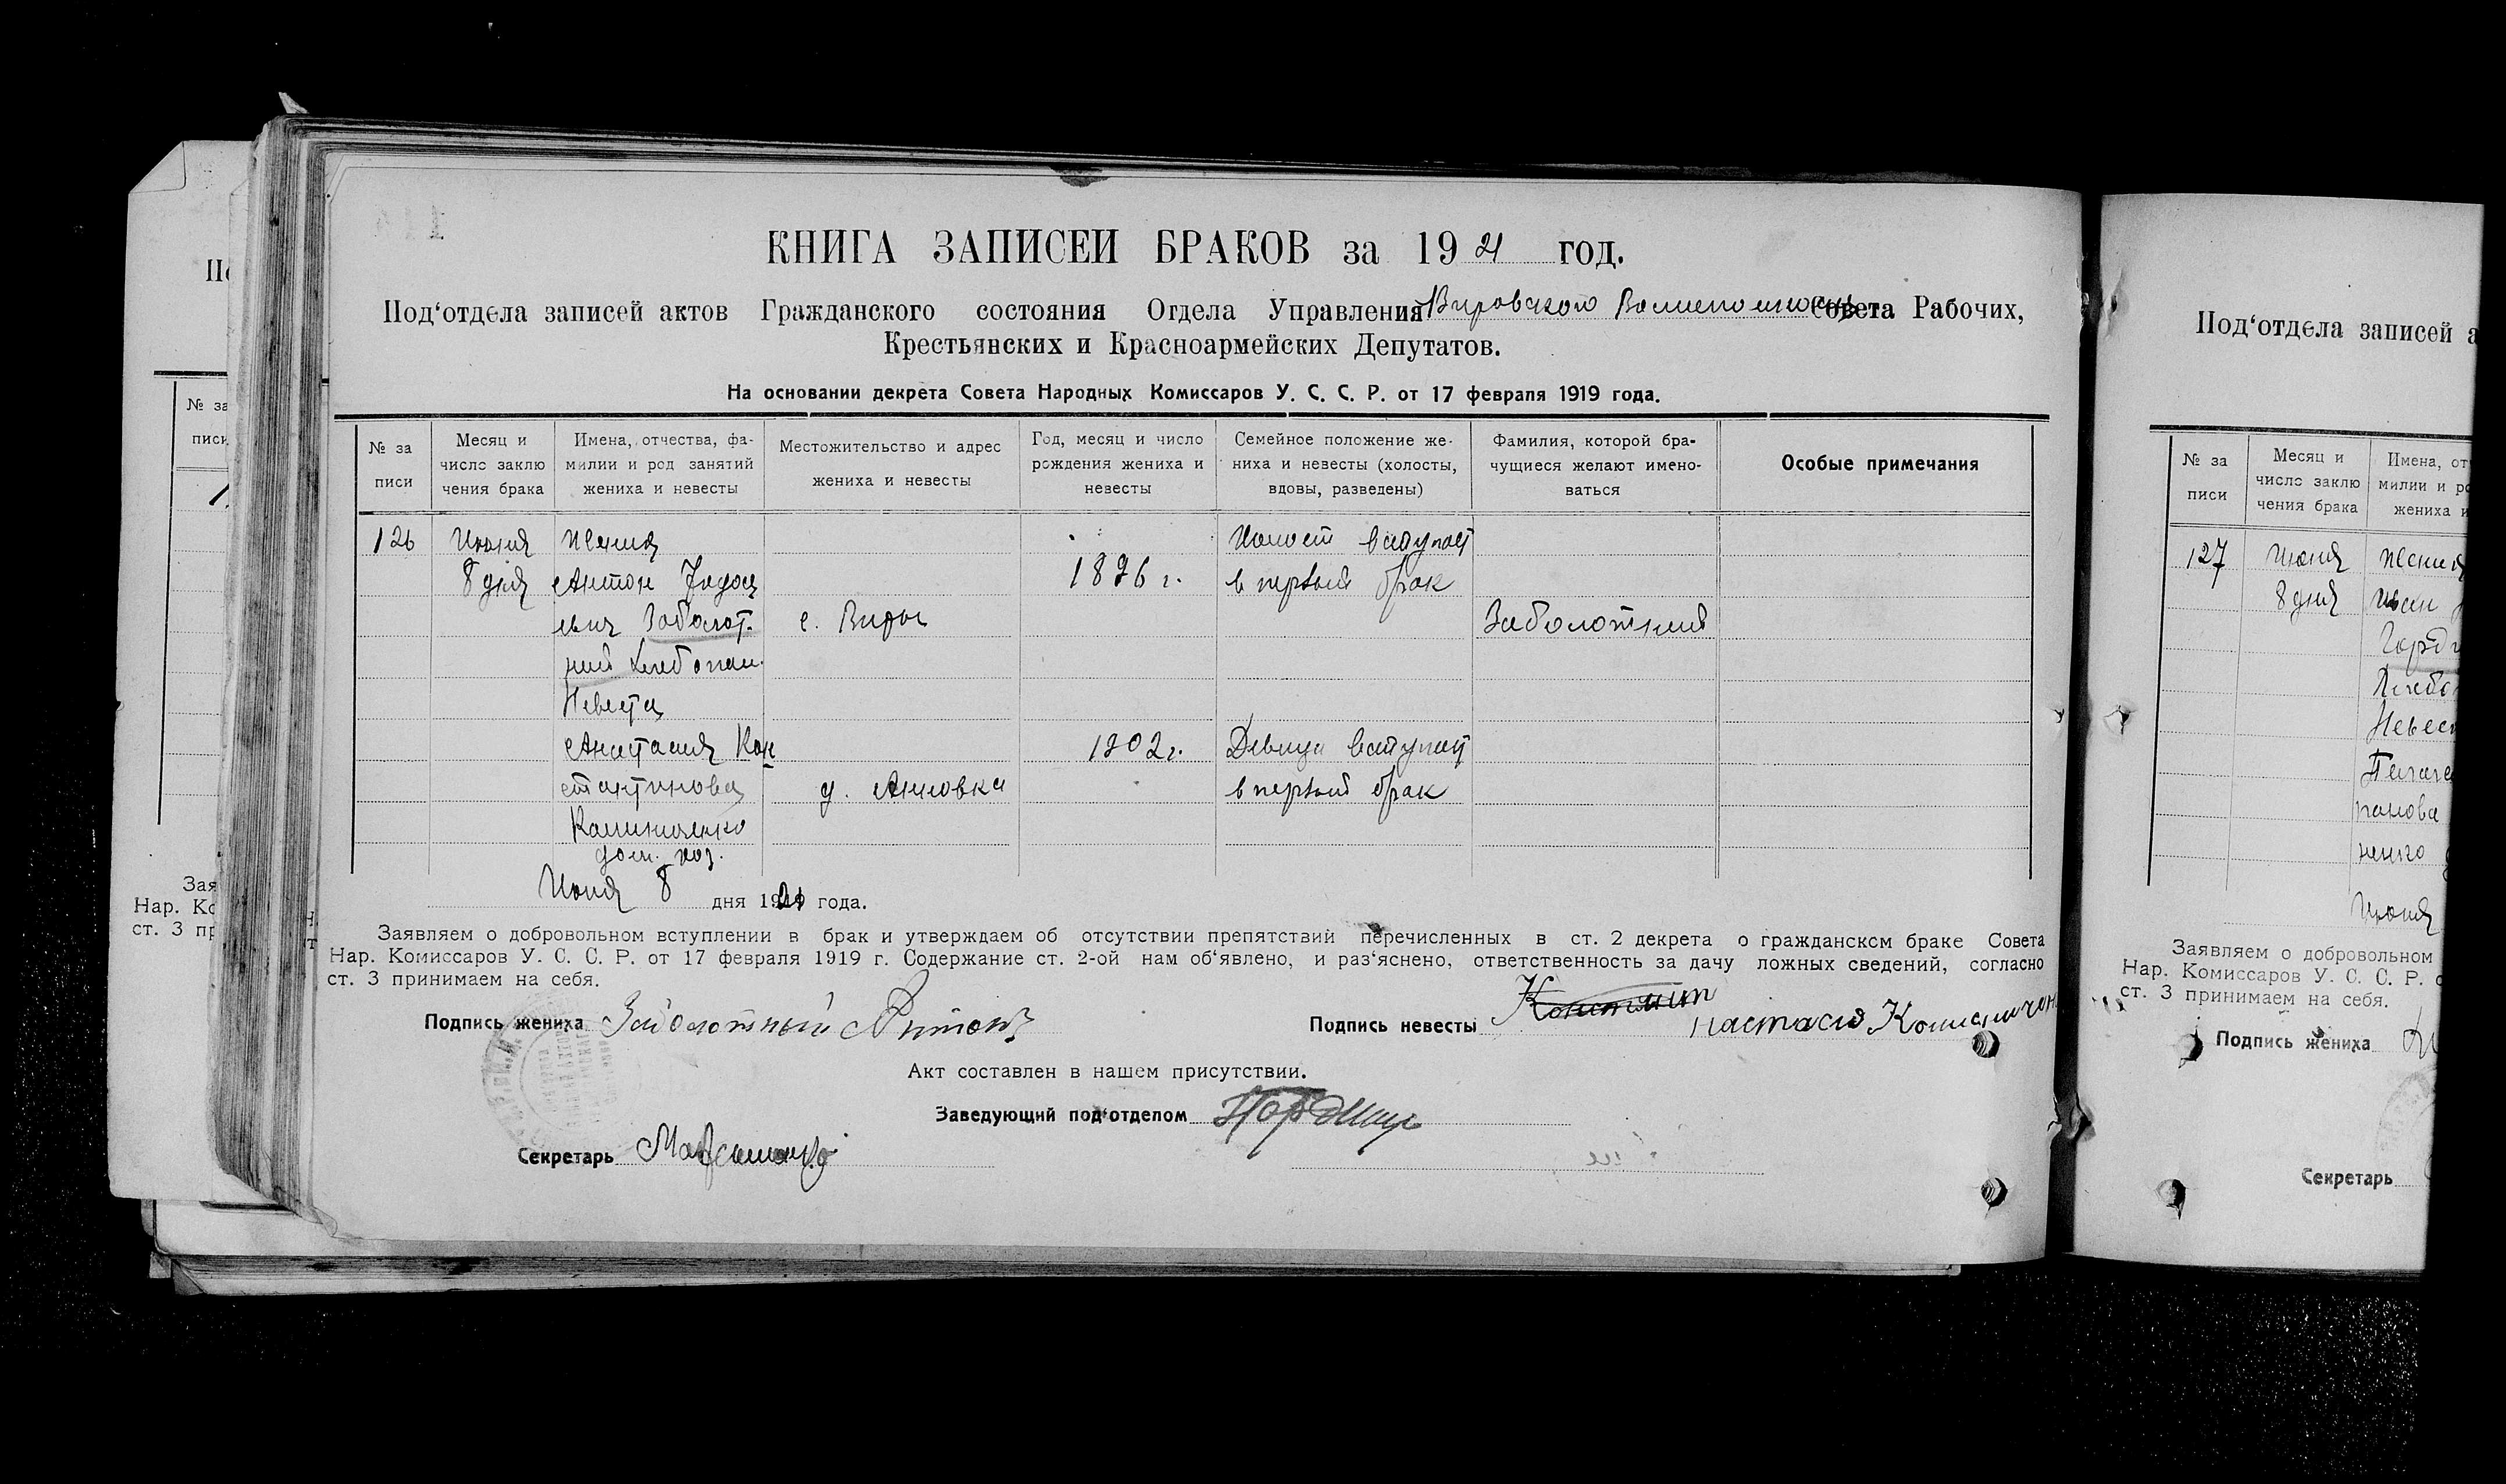 КНИГА ЗАПИСЕЙ БРАКОВ за 1921 год.
Под‘отдела записей актов Гражданского состояния Отдела Управления Вировского Совета Рабочих,
Крестьянских и Красноармейских Депутатов.
На основании декрета Совета Народных Комиссаров У. С. С. Р. от 17 февраля 1919 года.
№ за
писи
Месяц и
число заклю
чения брака
Имена, отчества, фа-
милии и род занятий
жениха и невесты
Местожительство и адрес
жениха и невесты
Год, месяц и число
рождения жениха и
невесты
Семейное положение же-
ниха и невесты (холосты,
вдовы, разведены)
Фамилия, которой бра-
чущиеся желают имено-
ваться
Особые примечания
126
Июня
8 дня
Жених
Антон
евич Заболот-
ний Хлебопаш.
Невеста
Анастасия Кон
стантинова
дом. хоз.
с. Виры
д. Анновка
1896 г.
1902 г.
Холост вступает
в первый брак
Девица вступает
в первый брак
Заболотний
Июня 8 дня 1921 года.
Заявляем о добровольном вступлении в брак и утверждаем об отсутствии препятствий перечисленных в ст. 2 декрета о гражданском браке Совета
Нар. Комиссаров У. С. С. Р. от 17 февраля 1919 г. Содержание ст. 2-ой нам об‘явлено, и раз‘яснено, ответственность за дачу ложных сведений, согласно
ст. 3 принимаем на себя.
Подпись жениха Заболотный Антон
Подпись невесты настасия
Акт составлен в нашем присутствии.
Заведующий под‘отделом
Секретарь
Под‘отдела записей а
№ за
писи
Месяц и
число заклю
чения брака
Имена, от
милии и ро
жениха и
127
Июня
8 дня
Жених
Иван
Хлебо
Невес
Июня
Заявляем о добровольном
Нар. Комиссаров У. С. С. Р. о
ст. 3 принимаем на себя.
Подпись жениха
Секретарь
№ за
писи
Зая
Нар. Ко
ст. 3 пр